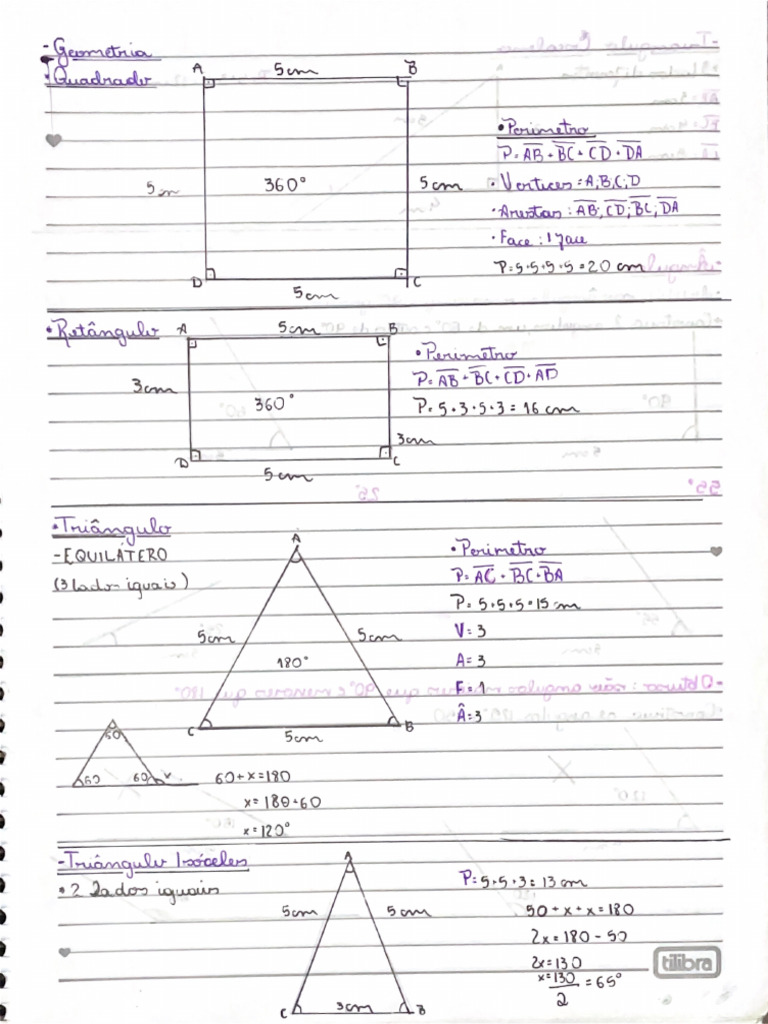 - Geometria
• Quadrado
A 5cm B
5cm
360°
5cm
D 5cm C
• Perimetro
P= AB + BC + CD + DA
• Vertices = A, B, C, D
• Arestas : AB, CD, BC, DA
• Face : 1 face
P= 5+5+5+5 = 20 cm
• Retângulo
A 5cm B
3cm
360°
3cm
D 5cm C
• Perimetro
P= AB + BC + CD + AD
P= 5+3+5+3 = 16 cm
• Triângulo
- EQUILÁTERO
(3 lados iguais)
A
5cm 5cm
180°
C 5cm B
• Perimetro
P= AC + BC + BA
P= 5+5+5=15 cm
V= 3
A= 3
F= 1
Â= 3
60
60 60 x
60+x=180
x= 180+60
x=120°
- Triângulo Isóceles
• 2 Lados iguais
A
5cm 5cm
C 3cm B
P= 5+5+3= 13 cm
50+x+x=180
2x=180-50
2x=130
x=130/2 = 65°
tilibra